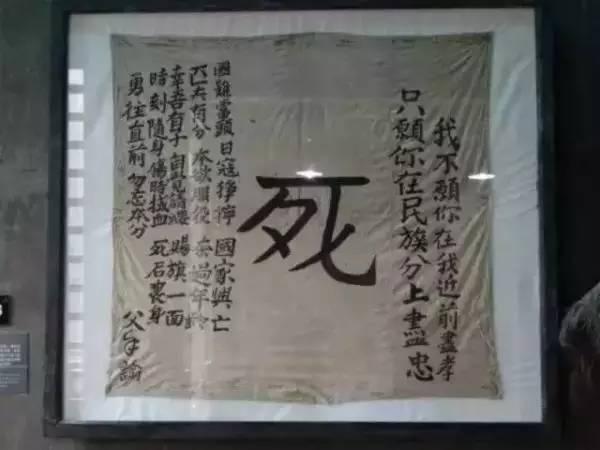 我不願你在我近前盡孝
只願你在民族分上盡忠
死
國難當頭日寇猙獰 國家興亡
匹夫有分 本欲服役 奈過年齡
幸吾有子 自覺請纓 賜旗一面
時刻隨身傷時拭血 死后裹身
勇往直前 勿忘本分
父手諭